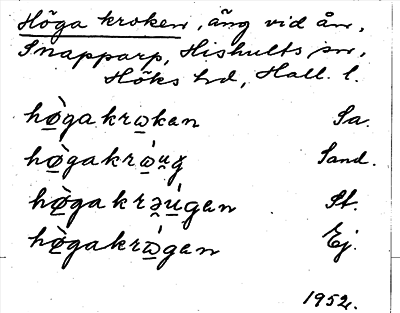 Höga kroken, äng vid ån,
Snapparp, Hishults sn,
Höks hd, Hall. l.
hø̱̀gakrω̱kan Sa.
hø̱̀gakrώ̱u̯g Sand.
hø̱̀gakrəú̱gan St.
hø̱̀gakrώ̱gan Ej.
1952.